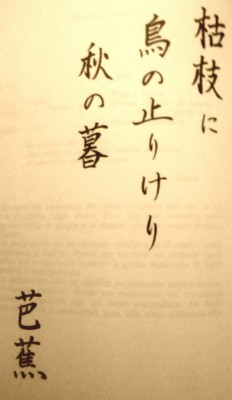 枯枝に
鳥の止りけり
秋の暮
芭蕉